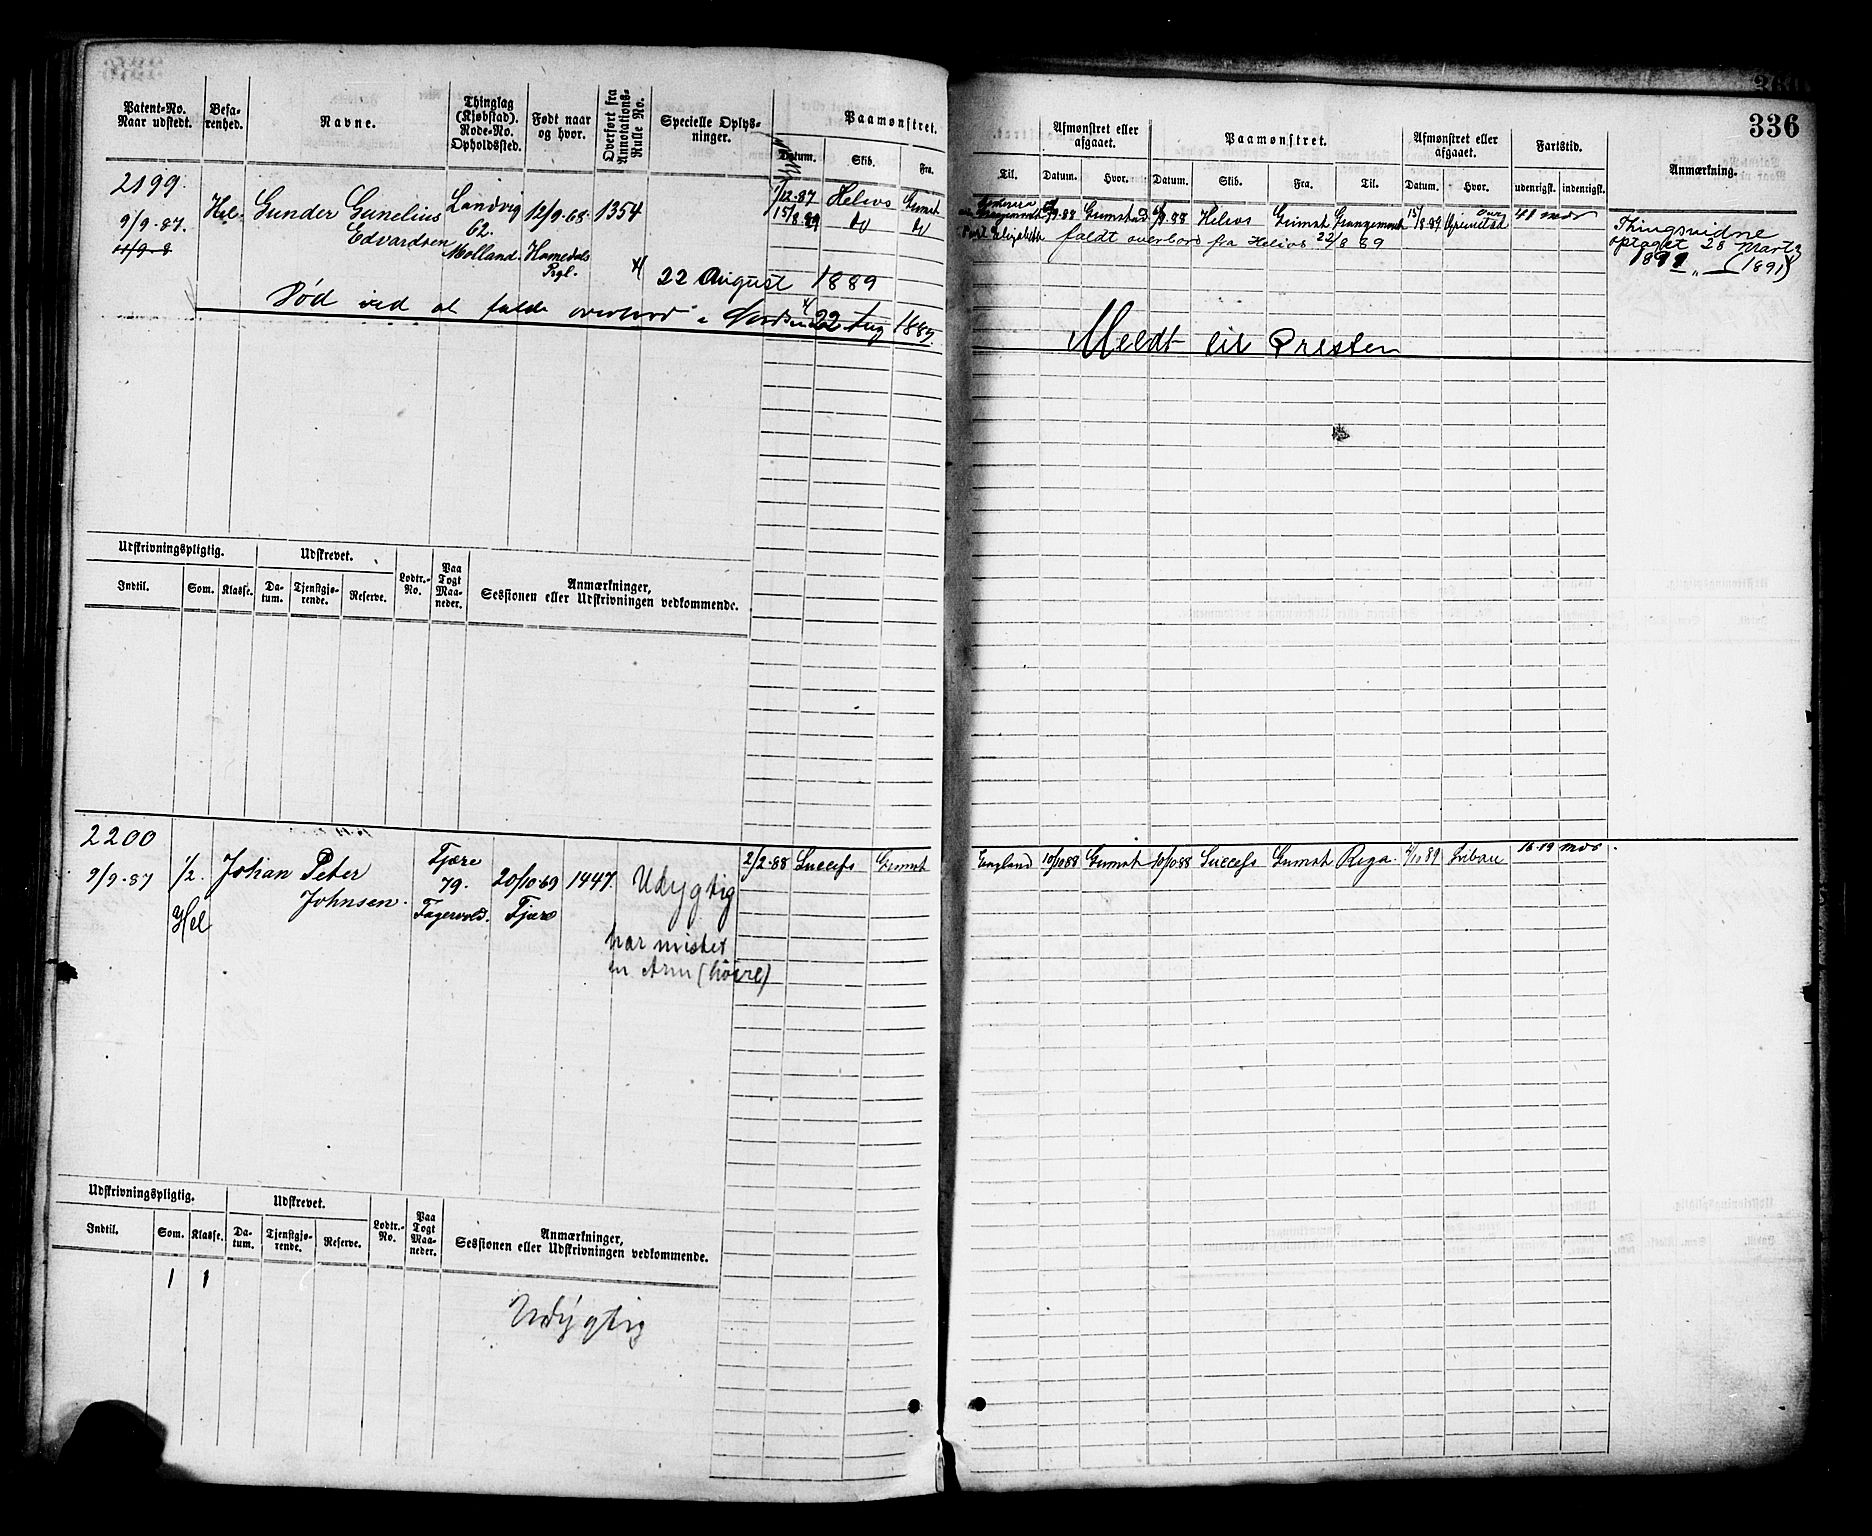 336
Patent-No. Naar udstedt.
Befarenhed.
Navne.
Thinglag (Kjøbstad). Rode-No. Opholdssted.
Født naar og hvor.
Overført fra Annotations-Rulle No.
Specielle Oplysninger.
Paamønstret.
Datum. Skib. Fra. Til.
Afmønstret eller afgaaet.
Datum. Hvor.
Paamønstret.
Datum. Skib. Fra. Til.
Afmønstret eller afgaaet.
Datum. Hvor.
Fartstid.
udenrigsk. indenrigsk.
Anmærkning.
2199
9/9-87
Hel-
Gunder Gunelius
Edvardsen
Landvig
62.
Molland.
12/9-68
Homedals
Prgl.
1354
1/12-87 Helios Grimst
15/8.89 do do
Grangemouth
Port Elizabeth
9.88 Grimstad 9.88 Helios Grimst Grangemouth 15/8-89 Grimstad
faldt overbord fra Helios 22/8 89
Thingsvidne
optaget 28 Marts
(1891)
22 August 1889
Død ved at falde overbord i Nordsøen 22 Aug 1889
Meldt til Presten
Udskrivningspligtig.
Indtil. Som. Klasse.
Udskrevet.
Datum. Tjenstgjørende. Reserve.
Lodtr.-No.
Paa Togt Maaneder.
Anmærkninger,
Sessionen eller Udskrivningen vedkommende.
2200
9/9-87
1/2
Hel
Johan Peter
Johnsen
Fjære
79.
Fagervold.
20/10-69
Fjære
1447
Udygtig
har mistet
en Arm (höire)
2/2-88 Success Grimst
England 10/10 88 Grimst 10/10 88 Success Grimst Riga 89 Libau 16-19 mdr.
Udskrivningspligtig.
Indtil. Som. Klasse.
Udskrevet.
Datum. Tjenstgjørende. Reserve.
Lodtr.-No.
Paa Togt Maaneder.
Anmærkninger,
Sessionen eller Udskrivningen vedkommende.
1 1
Udygtig